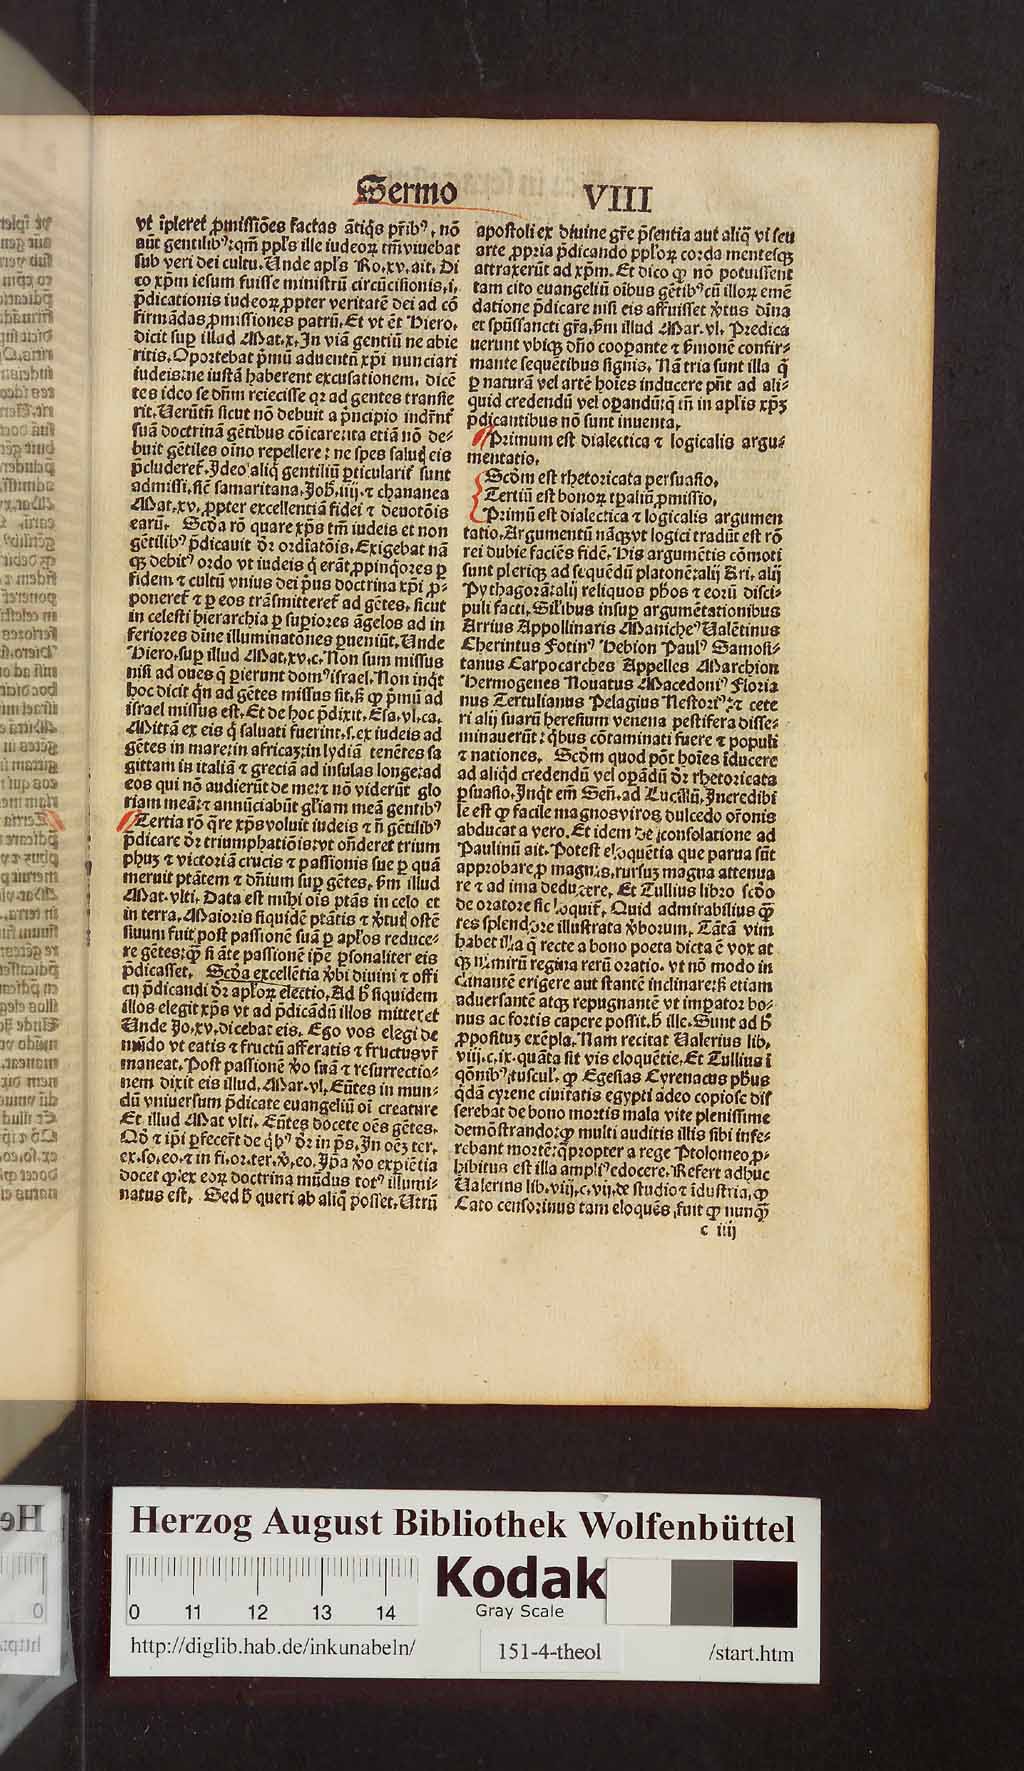 Sermo VIII
vt īpleret ꝓmissiōes factas ātiq̄s pr̄ibꝰ, nō
aūt gentilibꝰ: qm̄ ppl's ille iudeoꝝ tm̄ viuebat
sub veri dei cultu. Unde apl's Ro. xv. ait. Di
co xp̄m iesum fuisse ministrū circūcisionis .i.
p̄dicationis iudeoꝝ ꝓpter veritatē dei ad cō
firmādas ꝓmissiones patrū. Et vt ēt Hiero.
dicit suꝑ illud Mat. x. In viā gentiū ne abie
ritis. Oportebat pͥmū aduentū xp̄i nunciari
iudeis: ne iustā haberent excusationem, dicē
tes ideo se dn̄m reiecisse qꝛ ad gentes transfie
rit. Uerūtn̄ sicut nō debuit a pͥncipio indr̄nt̄
suā doctrinā gētibus cōicare: ita etiā nō de-
buit gētiles oīno repellere: ne spes salutꝭ eis
p̄cluderet̄. Ideo aliq̄ gentiliū ꝑticularit̄ sunt
admissi, sic̄ samaritana. Joh̄. iiij. ⁊ chananea
Mat. xv. ꝓpter excellentiā fidei ⁊ deuotōis
earū. Scd̄a rō quare xp̄s tm̄ iudeis et non
gētilibꝰ p̄dicauit dr̄ ordīatōis. Exigebat nā
qꝫ debitꝰ ordo vt iudeis q̄ erāt ꝓpinq̄ores ꝑ
fidem ⁊ cultū vnius dei pͥus doctrina xp̄i ꝓ-
poneret̄ ⁊ ꝑ eos trāsmitteret̄ ad gētes. sicut
in celesti hierarchia ꝑ suꝑiores āgelos ad in
feriores diīne illuminatōnes ꝑueniūt. Unde
Hiero. suꝑ illud Mat. xv. c. Non sum missus
nisi ad oues q̄ ꝑierunt domꝰ israel. Non inq̄t
hoc dicit qn̄ ad gētes missus sit. sꝫ ꝙ pͥmū ad
israel missus est. Et de hoc p̄dixit. Esa. vl. ca.
Mittā ex eis qͥ saluati fuerint .s. ex iudeis ad
gētes in mare: in africaꝫ: in lydiā tenētes sa
gittam in italiā ⁊ greciā ad insulas longe: ad
eos qui nō audierūt de me: ⁊ nō viderūt glo
riam meā: ⁊ annūciabūt gl'iam meā gentibꝰ
Tertia rō q̄re xp̄s voluit iudeis ⁊ n̄ gētilibꝰ
p̄dicare dr̄ triumphatiōis: vt on̄deret trium
phuꝫ ⁊ victoriā crucis ⁊ passionis sue ꝑ quā
meruit ptātem ⁊ dn̄ium suꝑ gētes. s̄m illud
Mat. vlti. Data est mihi oīs ptās in celo et
in terra. Maioris siquidē ptātis ⁊ v̄tutꝭ ostē
siuum fuit post passionē suā ꝑ aplōs reduce-
re gētes: ꝙ̄ si āte passionē ip̄e ꝑsonaliter eis
p̄dicasset. Scd̄a excellētia v̄bi diuini ⁊ offi
cij p̄dicandi dr̄ apl'oꝝ electio. Ad h̄ siquidem
illos elegit xp̄s vt ad p̄dicādū illos mitteret
Unde Jo. xv. dicebat eis. Ego vos elegi de
mūdo vt eatis ⁊ fructū afferatis ⁊ fructusvr̄
maneat. Post passionē v̄o suā ⁊ resurrectio-
nem dixit eis illud. Mar. vl. Eūtes in mun-
dū vniuersum p̄dicate euangeliū oī creature
Et illud Mat vlti. Eūtes docete oēs gētes.
Qd̄ ⁊ ip̄i ꝑfecer̄t de qͥbꝰ dr̄ in ps̄. In oēꝫ ter.
ex. so. eo. ⁊ in fi. or. ter. v̄. eo. Ip̄a v̄o exꝑiētia
docet ꝙ ex eoꝝ doctrina mūdus totꝰ illumi-
natus est. Sed h̄ queri ab aliq̄ posset. Utrū
apostoli ex diuine gr̄e p̄sentia aut aliq̄ vi seu
arte ꝓpria p̄dicando ppl'oꝝ corda mentesqꝫ
attraxerūt ad xp̄m. Et dico ꝙ nō potuissent
tam cito euangeliū oībus gētibꝰ cū illoꝝ emē
datione p̄dicare nisi eis affuisset v̄tus diīna
et spūssancti gr̄a. s̄m illud Mar. vl. Predica
uerunt vbiqꝫ dn̄o cooꝑante ⁊ s̄monē confir-
mante sequētibus signis. Nā tria sunt illa q̄
ꝑ naturā vel artē hoīes inducere pn̄t ad ali-
quid credendū vel oꝑandū: q̄ tn̄ in apl'is xp̄ꝫ
p̄dicantibus nō sunt inuenta.
Primum est dialectica ⁊ logicalis argu-
mentatio.
Scd̄m est rhetoricata persuasio.
Tertiū est bonoꝝ tꝑaliū ꝓmissio.
Primū est dialectica ⁊ logicalis argumen
tatio. Argumentū nāqꝫ vt logici tradūt est rō
rei dubie faciēs fidē. His argumētis cōmoti
sunt pleriqꝫ ad sequēdū platonē: alij Ari. alij
Pythagorā: alij reliquos ph̄os ⁊ eorū disci-
puli facti. Sil'ibus insuꝑ argumētationibus
Arrius Appollinaris Manicheꝰ Ualētinus
Cherintus Fotinꝰ Hebion Paulꝰ Samosi-
tanus Carpocarches Appelles Marchion
Hermogenes Nouatus Macedoniꝰ Floria
nus Tertulianus Pelagius Nestoriꝰ: ⁊ cete
ri alij suarū heresium venena pestifera disse-
minauerūt: qͥbus cōtaminati fuere ⁊ populi
⁊ nationes. Scd̄m quod pōt hoīes īducere
ad aliqͥd credendū vel oꝑādū dr̄ rhetoricata
ꝑsuasio. Inqͥt em̄ Sen̄. ad Lucillū. Incredibi
le est ꝙ facile magnos viros dulcedo or̄onis
abducat a vero. Et idem de consolatione ad
Paulinū ait. Potest eloquētia que parua sūt
approbare ꝓ magnis, rursuꝫ magna attenua
re ⁊ ad ima deducere. Et Tullius libro scd̄o
de oratore sic loquit̄. Quid admirabilius ꝙ̄
res splendore illustrata v̄borum. Tātā vim
habet illa q̄ recte a bono poeta dicta ē vox at
qꝫ nimirū regina rerū oratio. vt nō modo in
clinantē erigere aut stantē inclinare: sꝫ etiam
aduersantē atqꝫ repugnantē vt imꝑator bo-
nus ac fortis capere possit. h̄ ille. Sunt ad h̄
ꝓpositū exēpla. Nam recitat Ualerius lib.
viij. c. ix. quāta sit vis eloquētie. Et Tullius ī
qōnibꝰ tuscul'. ꝙ Egesias Cyrenacus ph̄us
qͥdā cyrene ciuitatis egypti adeo copiose dis
serebat de bono mortis mala vite plenissime
demōstrando: ꝙ multi auditis illis sibi infe-
rebant mortē: q̄propter a rege Ptolomeo ꝓ-
hibitus est illa ampliꝰ edocere. Refert adhuc
Ualerius lib. viij. c. vij. de studio ⁊ īdustria, ꝙ
Cato censorinus tam eloquēs fuit ꝙ nunꝙ̄
c iiij
Herzog August Bibliothek Wolfenbüttel
Kodak
Gray Scale
0 11 12 13 14
http://diglib.hab.de/inkunabeln/ 151-4-theol /start.htm